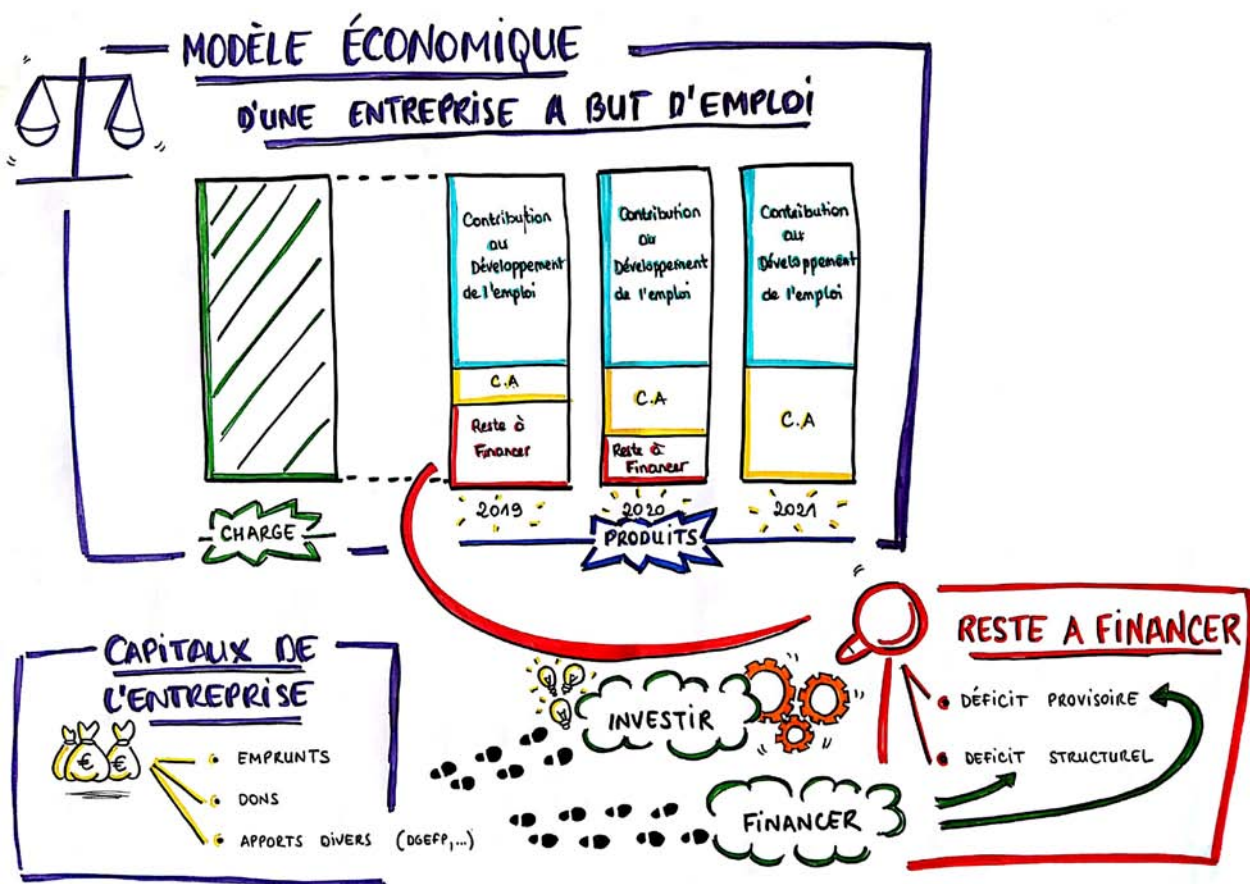 MODÈLE ÉCONOMIQUE
D'UNE ENTREPRISE A BUT D'EMPLOI
Contribution
au
Développement
de l'emploi
C.A
Reste à
Financer
2019
Contribution
au
Développement
de l'emploi
C.A
Reste à
Financer
2020
Contribution
au
Développement
de l'emploi
C.A
2021
CHARGE
PRODUITS
CAPITAUX DE
L'ENTREPRISE
€ €
EMPRUNTS
DONS
APPORTS DIVERS (DGEFP,...)
INVESTIR
FINANCER
RESTE A FINANCER
DÉFICIT PROVISOIRE
DEFICIT STRUCTUREL